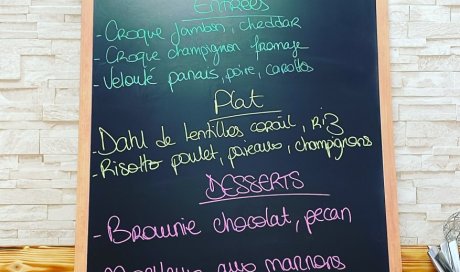 ENTRÉES
- Croque jambon, cheddar
- Croque champignon fromage
- Velouté panais, poire, carottes
Plat
- Dahl de lentilles corail, Riz
- Risotto poulet, poireaux, champignons
DESSERTS
- Brownie chocolat, pecan
aux marrons